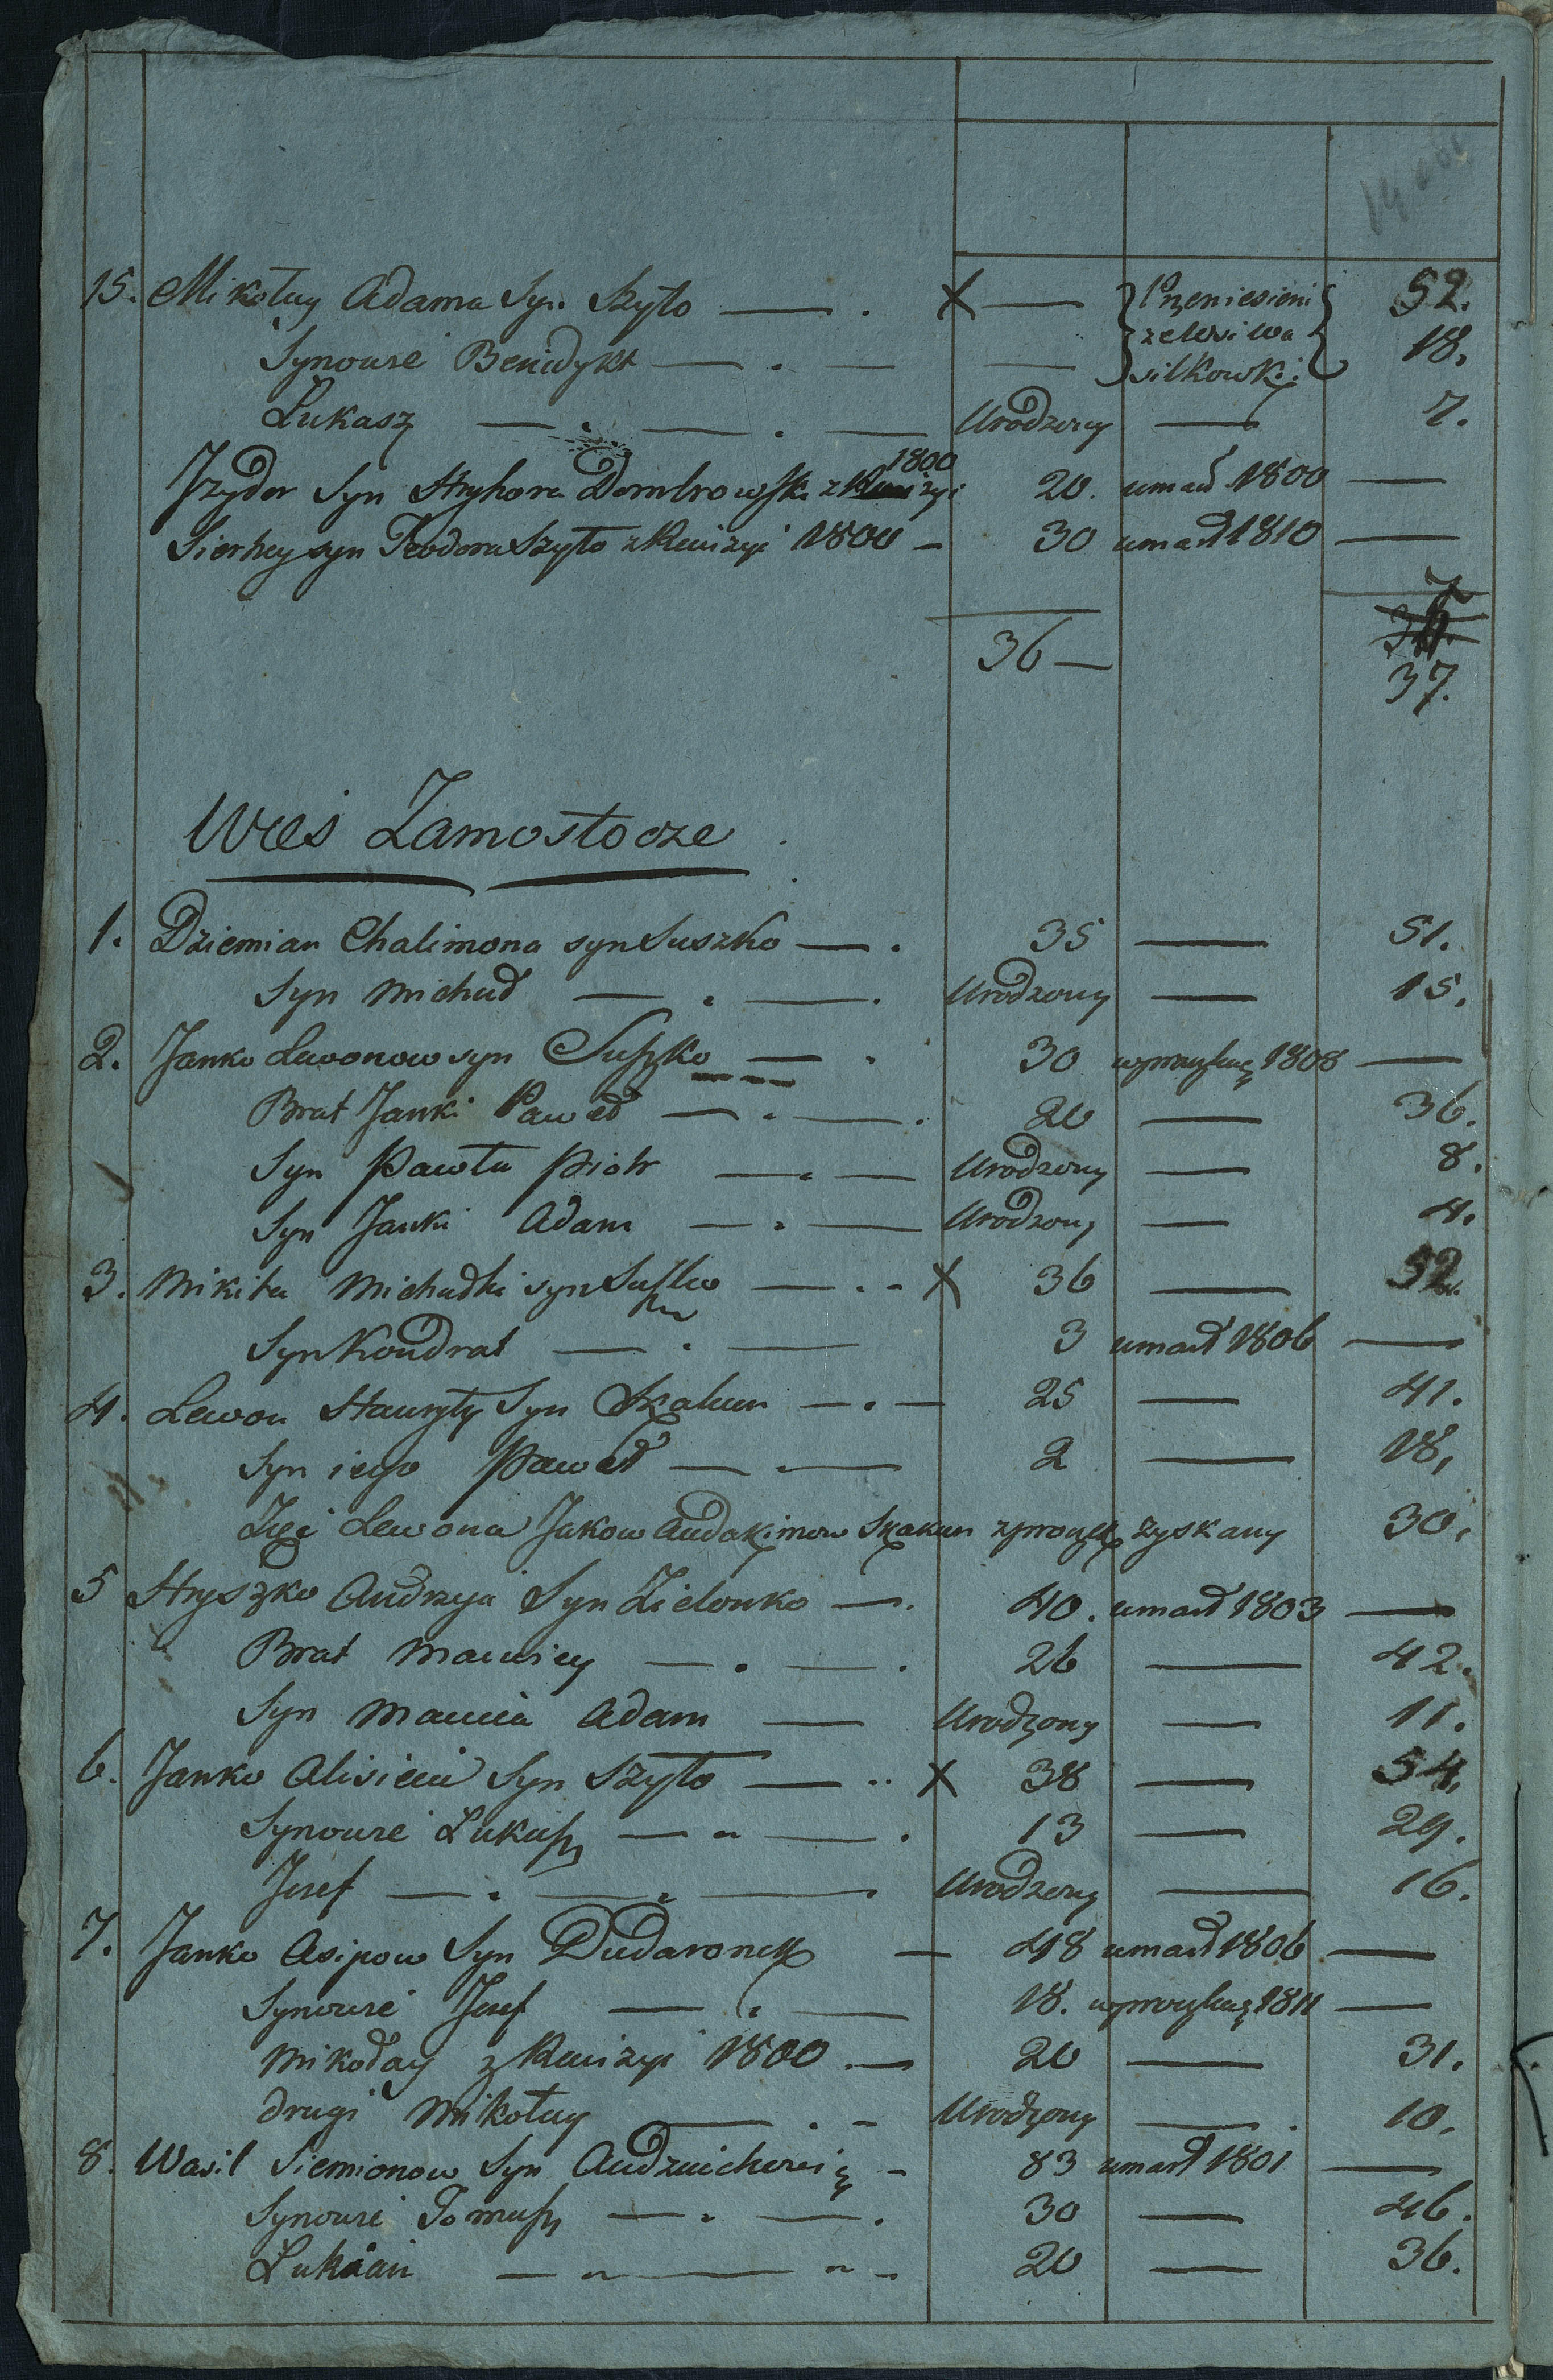 15. Mikołay Adama Syn Szyło — . X — Przeniesieni 52.
Synowie Benidykt — . — — ze Wsi Wa 18.
silkowki
Łukasz — . — . — Urodzony — 7.
1800
Jzydor Syn Hryhora Dombrowski z Rewizyi 20. umarł 1800 —
Sierhey syn Teodora Szyło z Rewizyi 1800 — 30 umarł 1810 —
36 —
37.
Wieś Zamostocze
1. Dziemian Chalimona syn Suszko — . 35 — 51.
Syn Michał — . — . Urodzony — 15.
2. Janko Lewonow syn Suszko — . 30 1808 —
Brat Janki Paweł — . — . 20 — 36.
Syn Pawła Piotr — . — Urodzony — 8.
Syn Janki Adam — . — Urodzony — 4.
3. Mikita Michałki syn — . - X 36 — 52.
Syn Kondrat — . — 3 umarł 1806 —
4. Lewon Hawryły Syn Skakun — . — 25 — 41.
Syn iego Paweł — . — 2 — 18,
Zięć Lewona Jakow Audakimow Skakun zyskany 30.
5 Hryszko Andrzeja Syn Zielonko — . 40. umarł 1803 —
Brat Mawiey — . — . 26 — 42.
Syn Mawieia Adam — Urodzony — 11.
6. Janko Alisieia Syn Szyło — .. X 38 — 54.
Synowie Łukasz — . — . 13 — 29.
Jozef — . — . — . Urodzony — 16.
7. Janko Asipow Syn Dudaronek — 48 umarł 1806 —
Synowie Jozef — . — 18. 1811 —
Mikołay z Rewizyi 1800 — 20 — 31.
drugi Mikołay — . - Urodzony — . 10.
8. Wasil Siemionow Syn - 83 umarł 1801 —
Synowie Tomasz — . — . 30 — 46.
Łukian — . — . - 20 — 36.